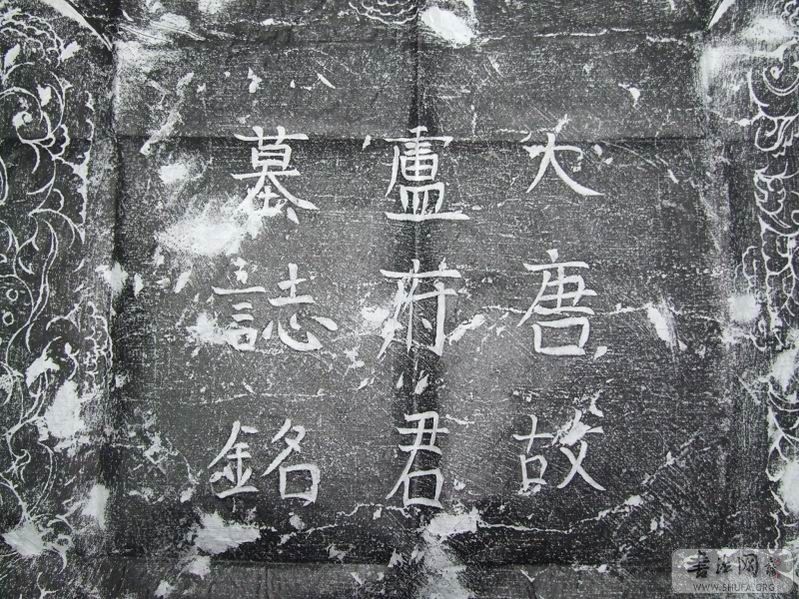 大唐故
盧府君
墓誌銘
书法网
WWW.SHUFA.ORG